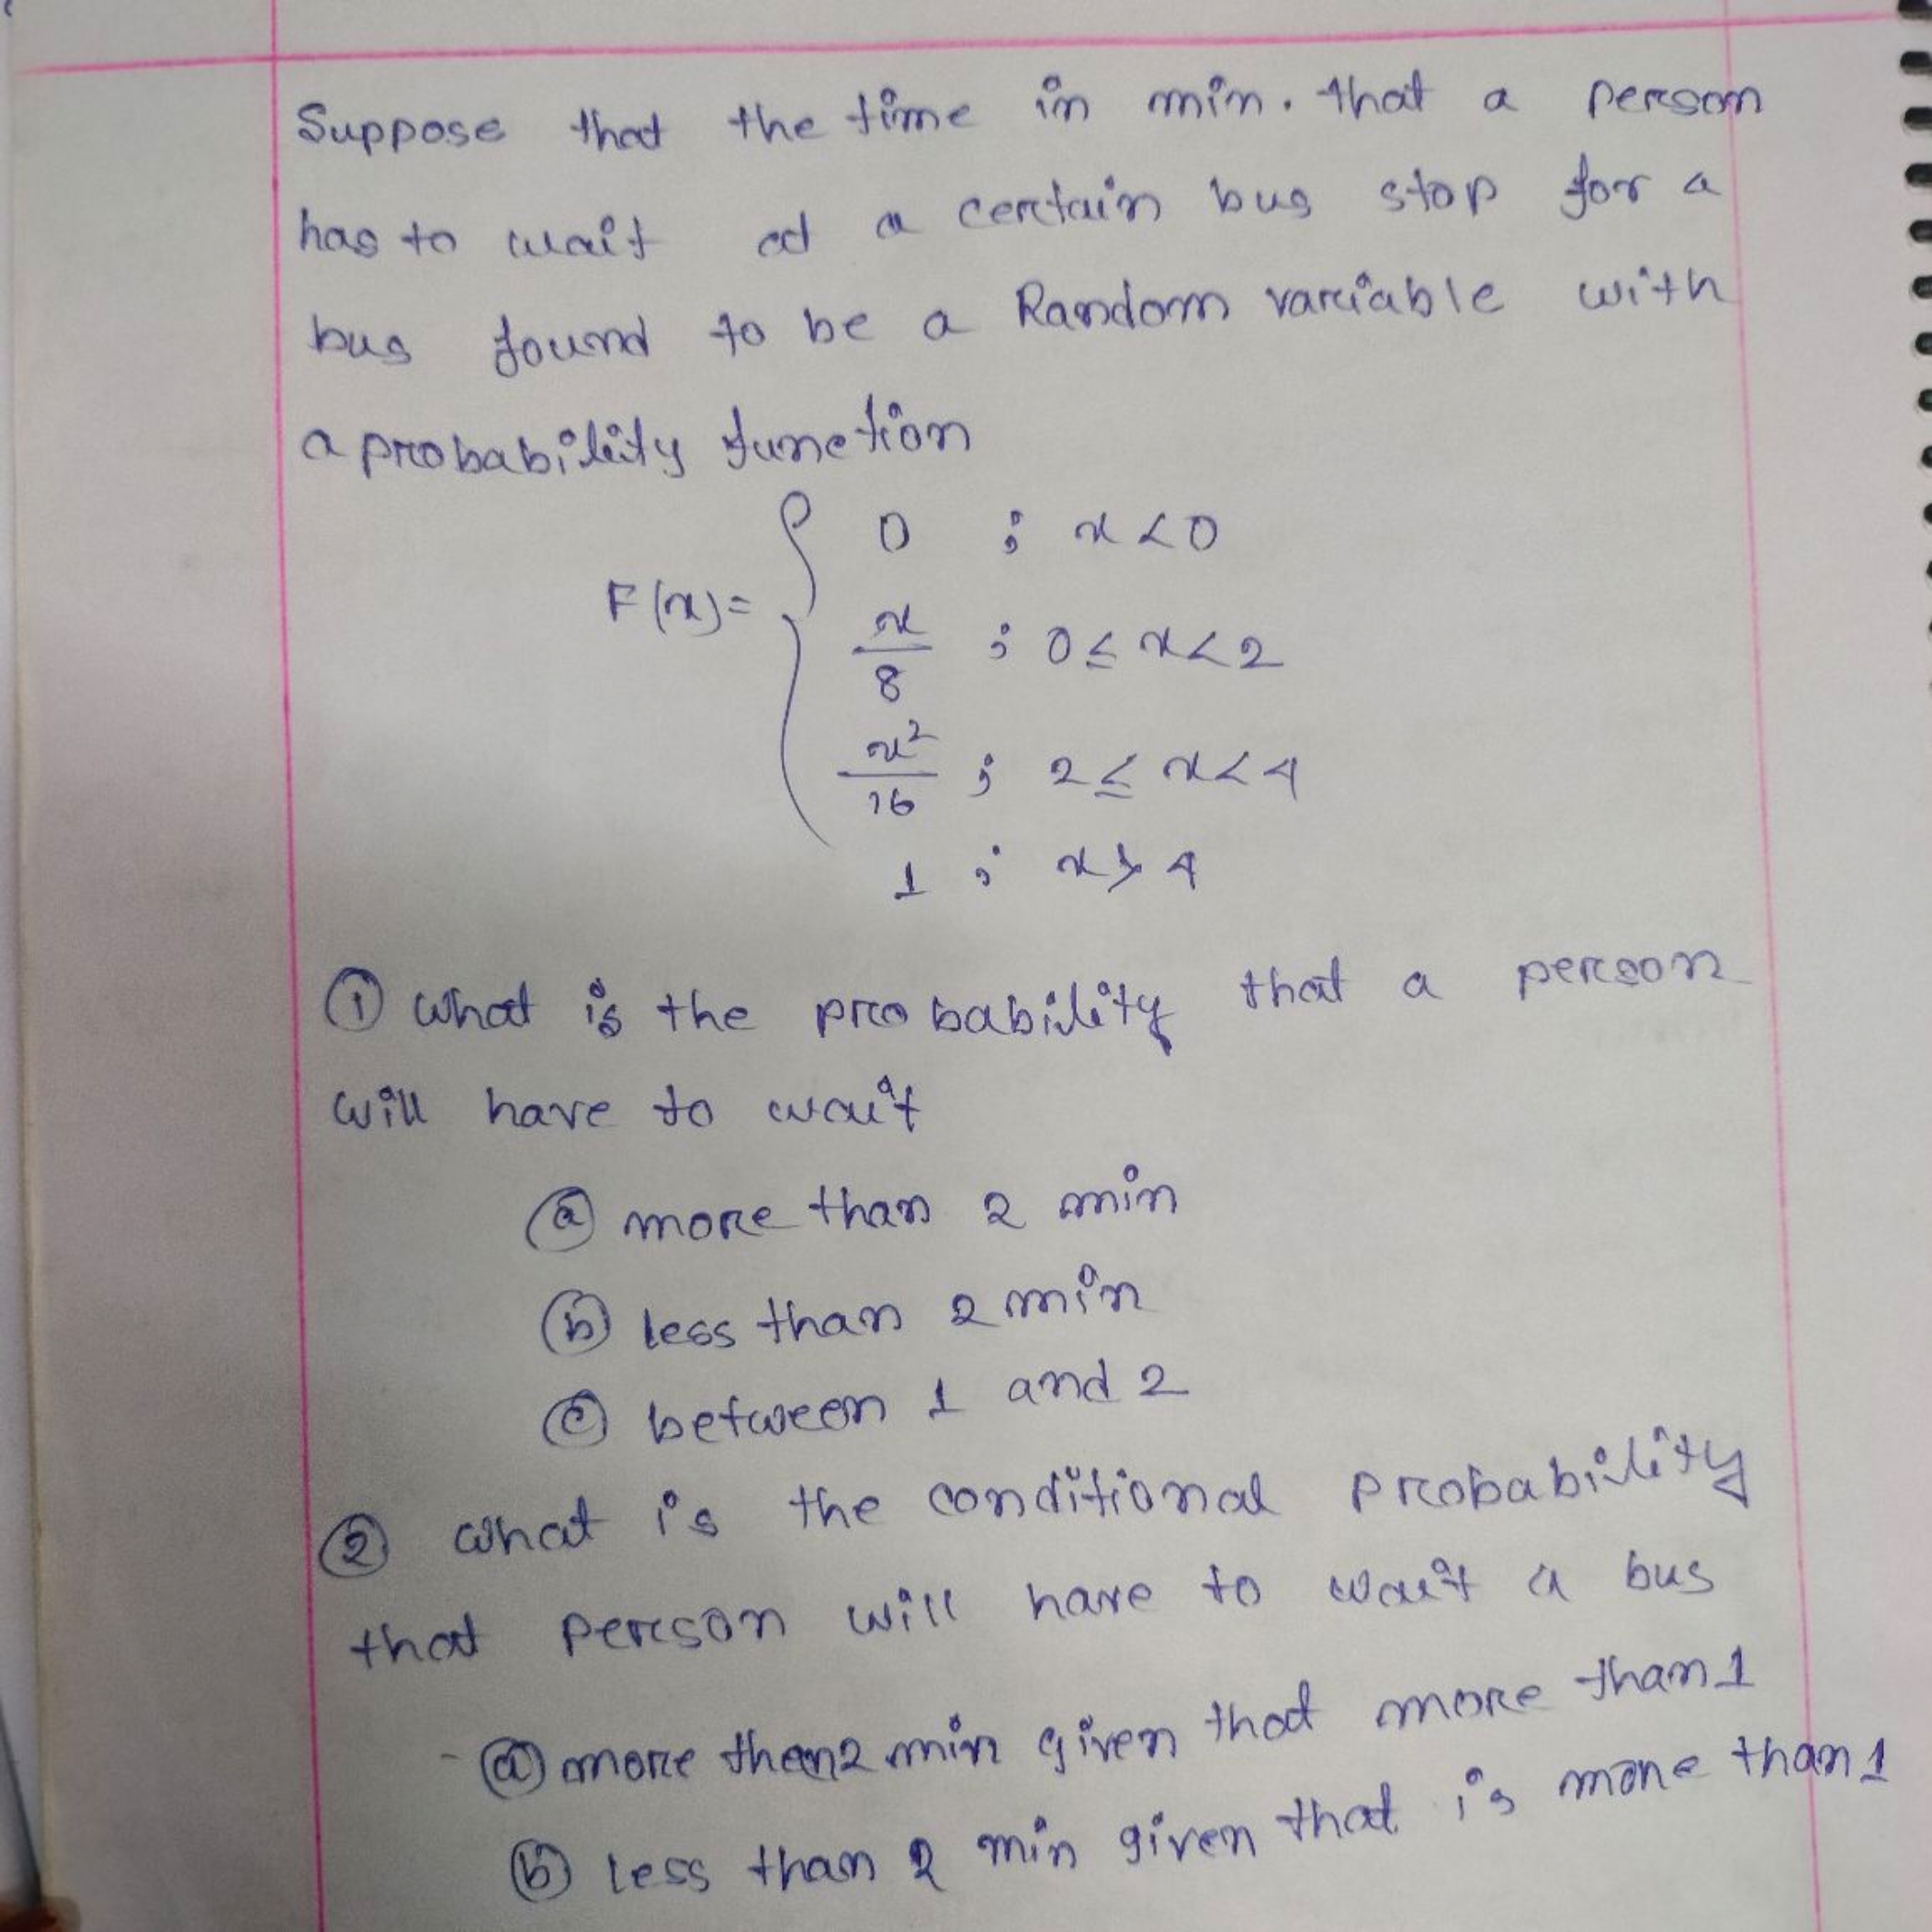 Suppose that the time in min. that a person
has to wait at a certain bus stop for a
bus found to be a Random variable with
a probability function
F(x)= { 0 ; x<0
x/8 ; 0≤x<2
x²/16 ; 2≤x<4
1 ; x≥4
① what is the probability that a person
will have to wait
ⓐ more than 2 min
ⓑ less than 2 min
ⓒ between 1 and 2
② what is the conditional probability
that person will have to wait a bus
- ⓐ more then 2 min given that more than 1
ⓑ less than 2 min given that is more than 1